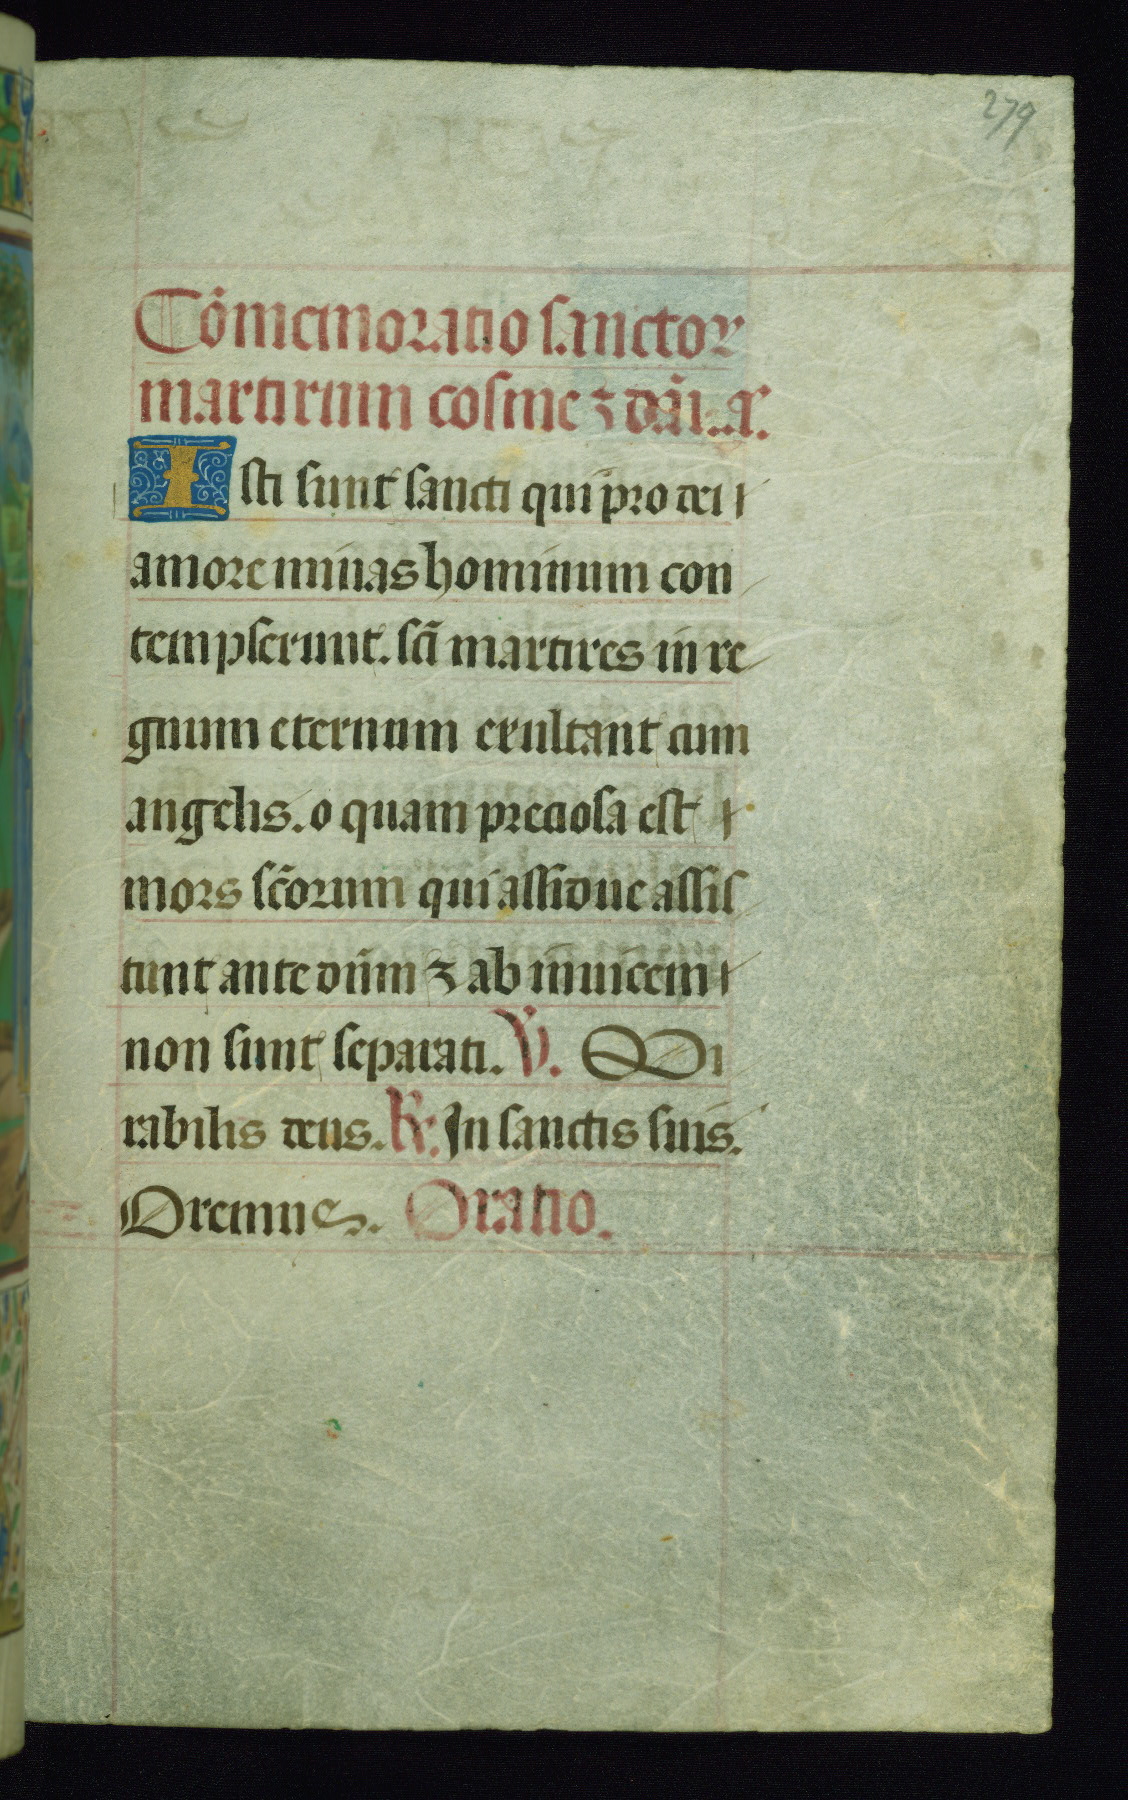 279
Cōmemoratio sanctor
martirum cosme ⁊ dāi. a.
Isti sunt sancti qui pro dei
amore minas hominum con
tempserunt. scī martires in re
gnum eternum exultant cum
angelis. o quam preciosa est
mors scōrum qui assidue assis
tunt ante dūm ⁊ ab inuicem
non sunt separati. V. Mi
rabilis deus. R. In sanctis suis.
Oremus. Oratio.